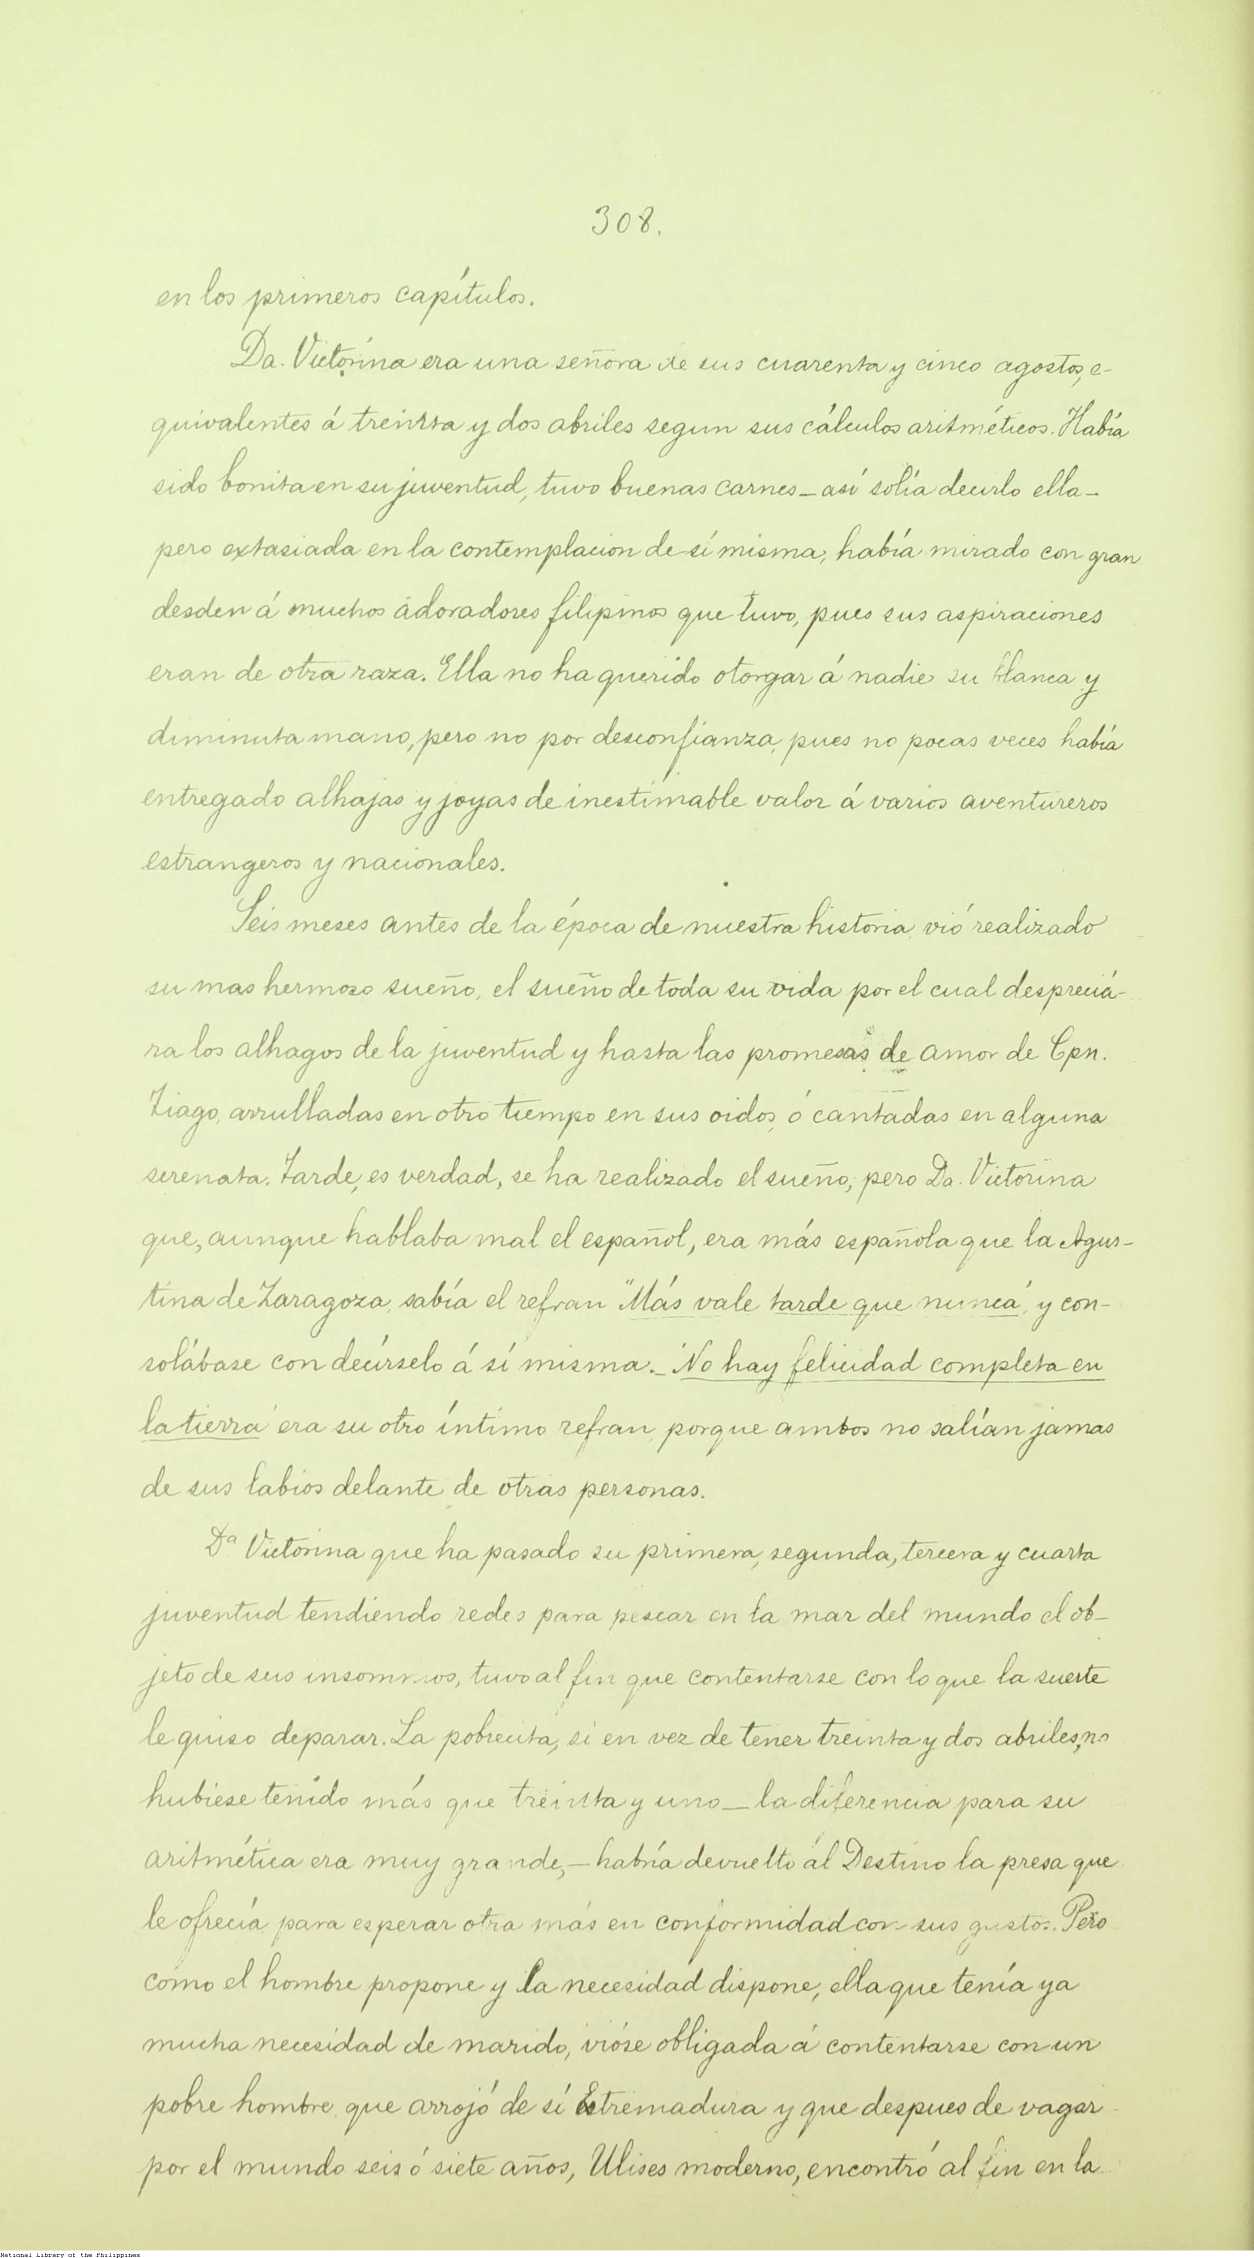 308.
en los primeros capítulos.
Da. Victorina era una señora de sus cuarenta y cinco agostos, e-
quivalentes á treinta y dos abriles segun sus cálculos aritméticos. Había
sido bonita en su juventud, tuvo buenas carnes - así solía decirlo ella -
pero extasiada en la contemplacion de sí misma, había mirado con gran
desden á muchos adoradores filipinos que tuvo, pues sus aspiraciones
eran de otra raza. Ella no ha querido otorgar á nadie su blanca y
diminuta mano, pero no por desconfianza, pues no pocas veces había
entregado alhajas y joyas de inestimable valor á varios aventureros
estrangeros y nacionales.
Seis meses antes de la época de nuestra historia, vió realizado
su mas hermoso sueño, el sueño de toda su vida por el cual despreciá-
ra los alhagos de la juventud y hasta las promesas de amor de Cpn.
Tiago, arrulladas en otro tiempo en sus oidos, ó cantadas en alguna
serenata. Tarde, es verdad, se ha realizado el sueño, pero Da. Victorina
que, aunque hablaba mal el español, era más española que la Agus-
tina de Zaragoza, sabía el refran "Más vale tarde que nunca", y con-
solábase con decírselo á sí misma. - "No hay felicidad completa en
la tierra" era su otro íntimo refran, porque ambos no salían jamas
de sus labios delante de otras personas.
Da Victorina que ha pasado su primera, segunda, tercera y cuarta
juventud tendiendo redes para pescar en la mar del mundo el ob-
jeto de sus insomnios, tuvo al fin que contentarse con lo que la suerte
le quiso deparar. La pobrecita, si en vez de tener treinta y dos abriles, no
hubiese tenido más que treinta y uno - la diferencia para su
aritmética era muy grande, - habría devuelto al Destino la presa que
le ofrecía para esperar otra más en conformidad con sus gustos. Pero
como el hombre propone y la necesidad dispone, ella que tenía ya
mucha necesidad de marido, vióse obligada á contentarse con un
pobre hombre, que arrojó de sí Estremadura y que despues de vagar
por el mundo seis ó siete años, Ulises moderno, encontró al fin en la
National Library of the Philippines